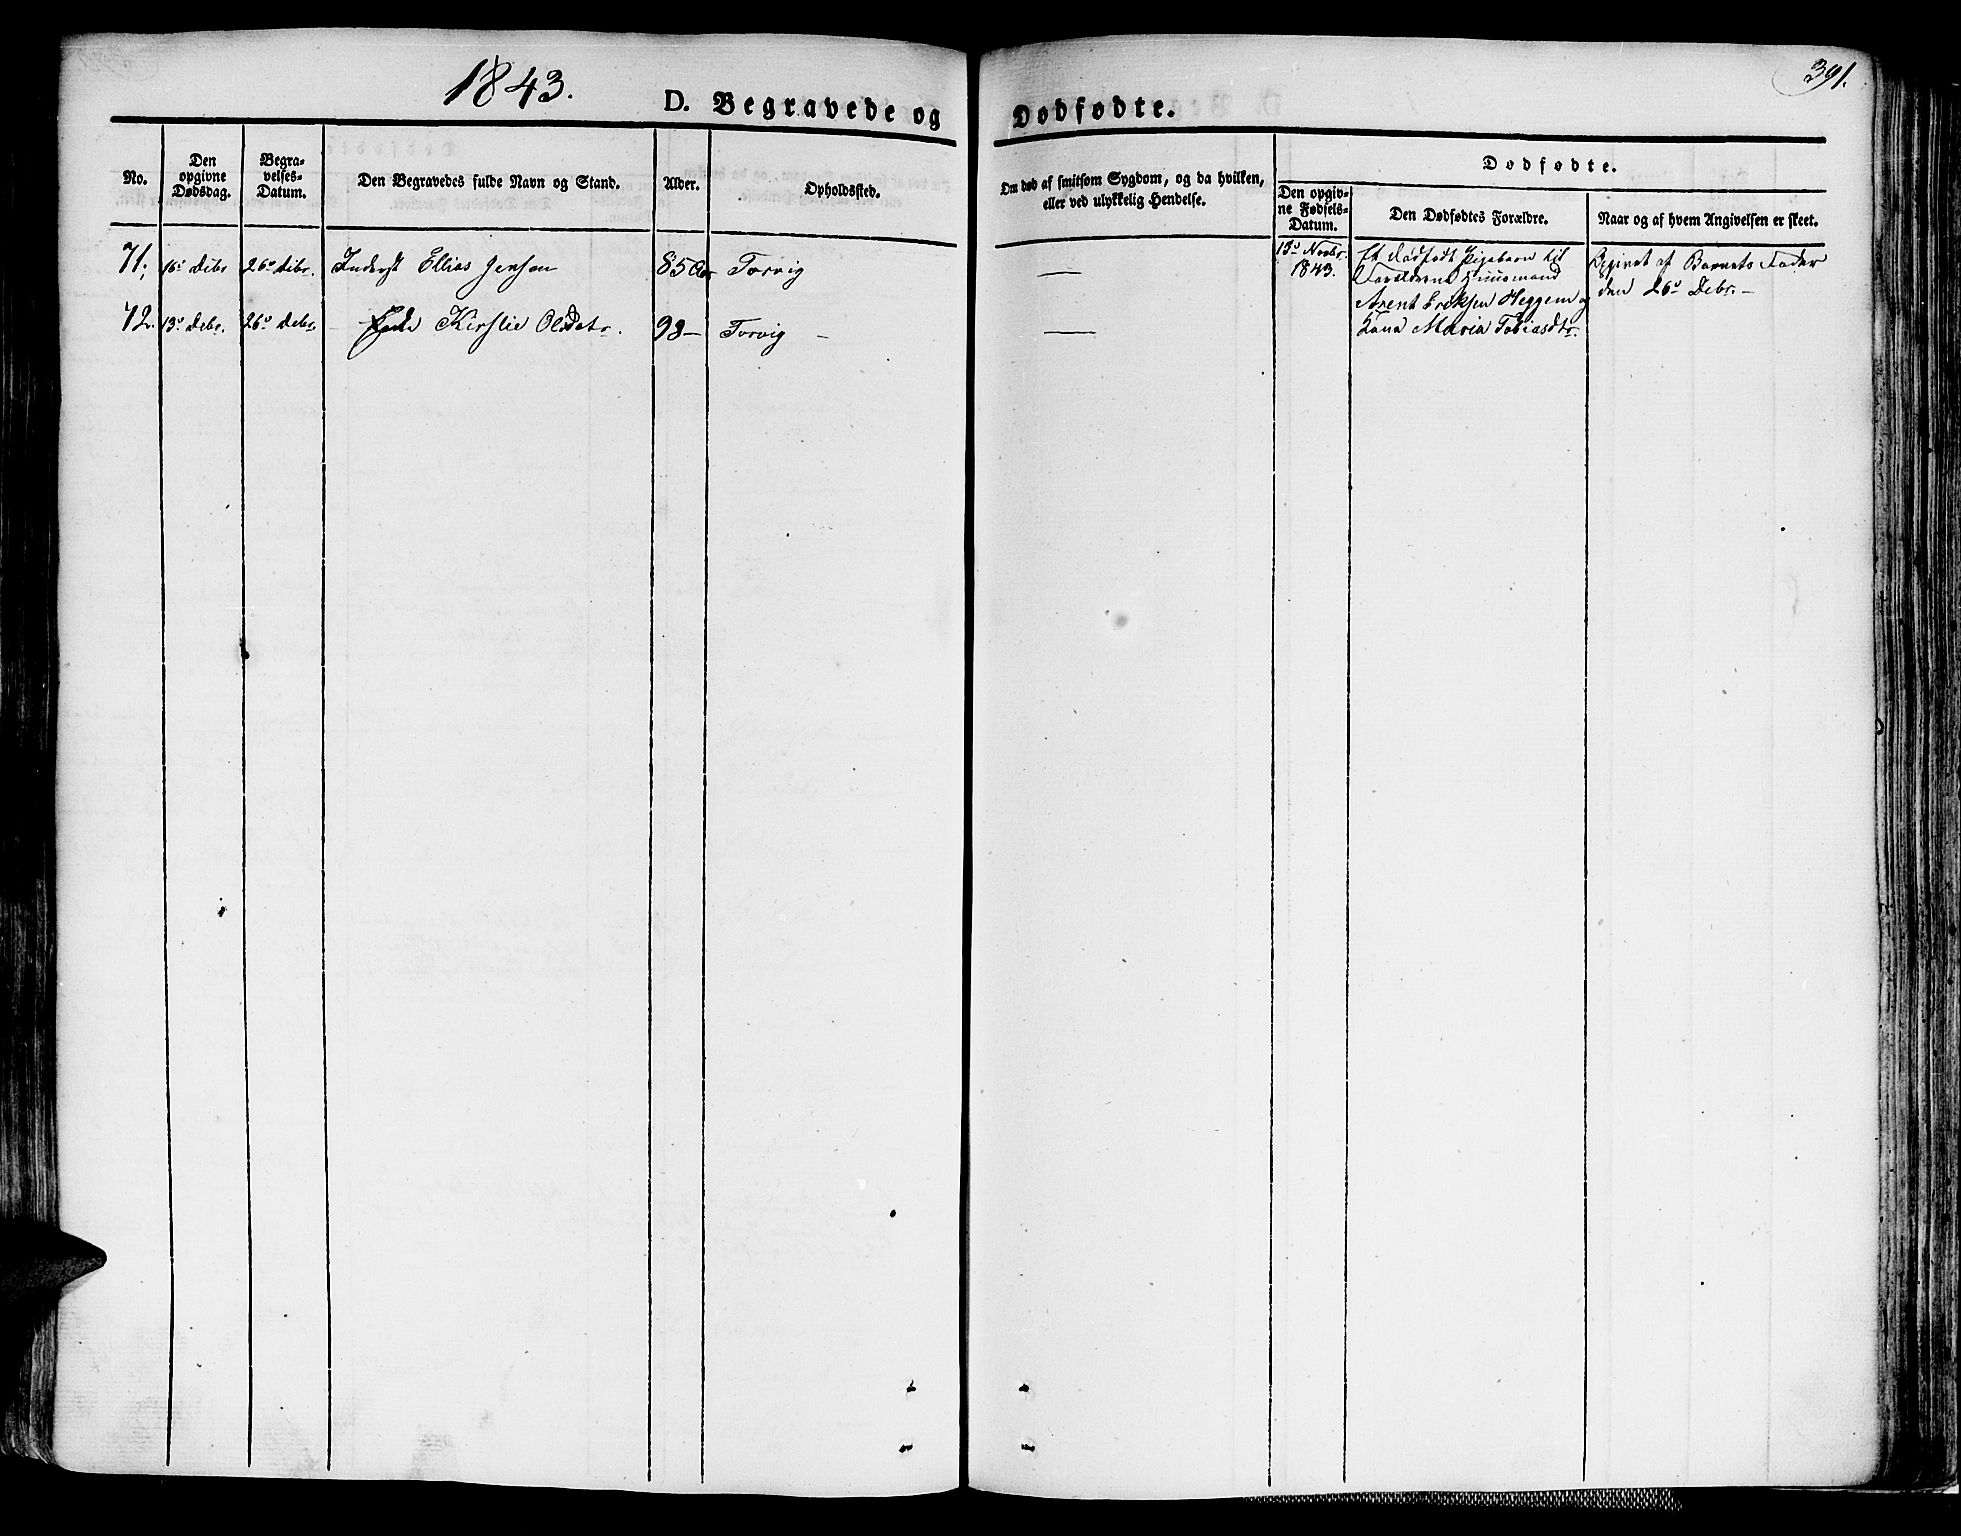 1843.
391.
D. Begravede og Dødfødte.
No.
Den opgivne Dødsdag.
Begravelses-Datum.
Den Begravedes fulde Navn og Stand.
Alder.
Opholdssted.
Om død af smitsom Sygdom, og da hvilken,
eller ved ulykkelig Hendelse.
Dødfødte.
Den opgivne Fødsels-Datum.
Den Dødfødtes Forældre.
Naar og af hvem Angivelsen er skeet.
71. 16de Decbr 26de Decbr. Inderst Ellias Jensen 85 Aar Torvig —
72. 13de Decbr. 26de Decbr. Enke Kirstie Olsdatr. 98 — Torvig — —
13de Novbr.
1843.
Et dødfødt Pigebarn til
Forældrene Huusmand
Arent Eriksen Heggem og
Kona Maria Tobiasdtr.
Begivet af Barnets Fader
den 26de Decbr. —